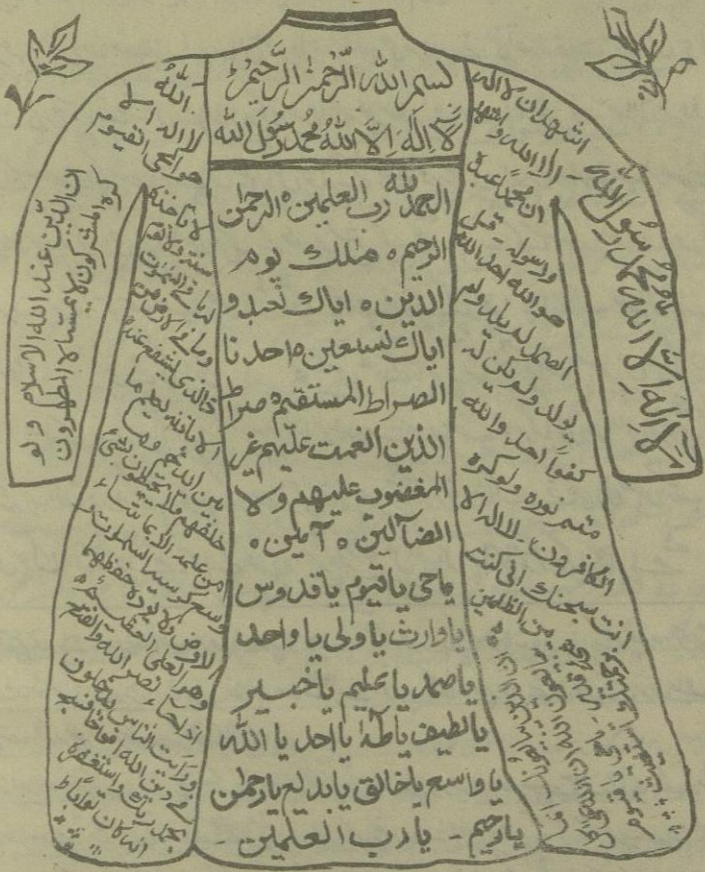 بسم الله الرَّحمٰن الرَّحیم
لَا اِلٰهَ اِلَّا اللهُ مُحَمَّد رَسُولُ الله
الحمد لله رب العلمین ه الرحمن
الرحیم ه ملك یوم
الدین ه ایاك نعبد و
ایاك نستعین ه اهدنا
الصراط المستقیم ه صراط
الذین انعمت علیهم غیر
المغضوب علیهم ولا
الضآلین ه آمین ه
یاحی یاقیوم یاقدوس
یاوارث یاولی یا واحد
یاصمد یا علیم یا خبیر
یالطیف یاطهٰ یااحد یا الله
یا واسع یاخالق یابدیع یارحمٰن
یارحیم - یارب العلمین -
اشهد ان لا اله
الا الله و اشهد
ان محمدا عبده
ورسوله - قل
هو الله احد الله
الصمد لم یلد ولم
یولد ولم یکن له
کفواً احد والله
متم نوره ولو کره
الکافرون - لا اله الا
انت سبحنك انی کنت
من الظلمین
لَا اِلٰهَ اِلَّا اللهُ محمد رسول الله
الله
لا اله الا
هو الحی القیوم
لا تاخذه
سنة ولا نوم
له ما فی السموت
وما فی الارض من
ذالذی یشفع عنده
الا باذنه یعلم ما
بین ایدیهم وما
خلفهم ولا یحیطون بشیٔ
من علمه الا بما شاء
وسع کرسیه السموت و
الارض ولا یوده حفظهما
وهو العلی العظیم
اذا جاء نصر الله والفتح
ورایت الناس یدخلون
فی دین الله افواجا فسبح
بحمد ربك واستغفره
انه کان توابا
ان الدین عند الله الاسلام ولو
کره المشرکون لا یمسه الا المطهرون